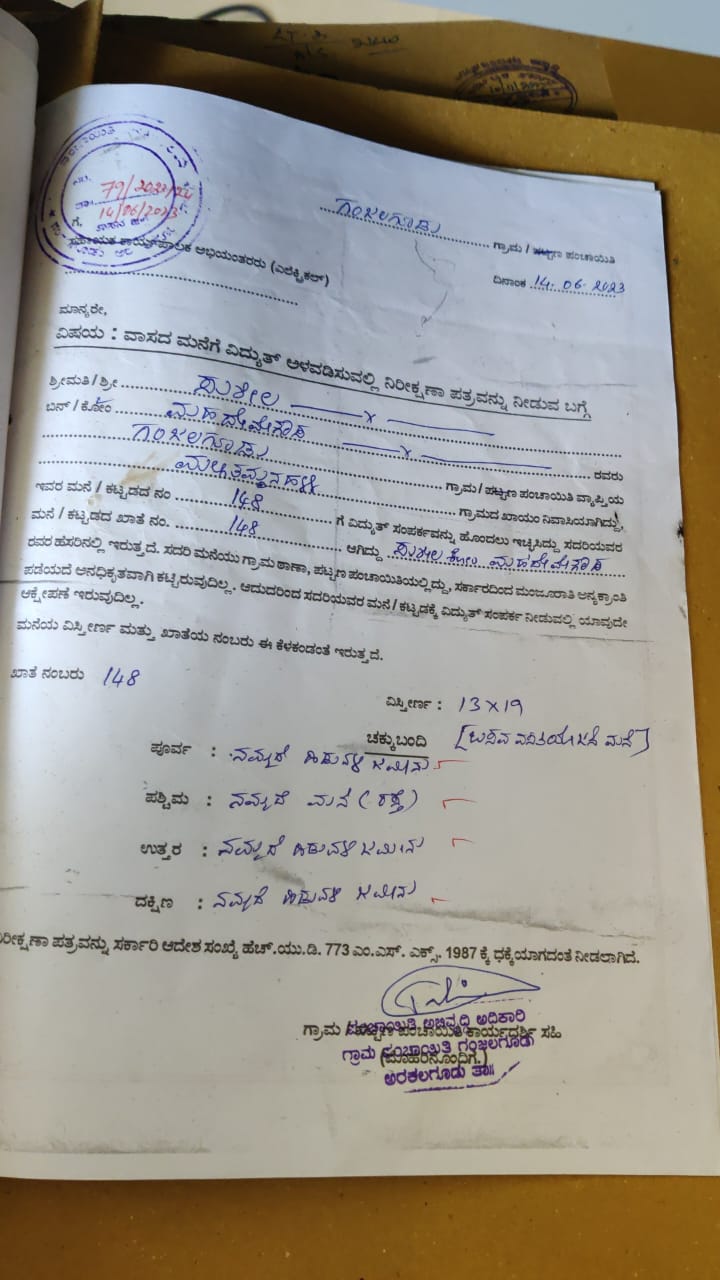 79/2023/24
14/06/2023
ಗಂಜಲಗೂಡು ಗ್ರಾಮ / ಪಟ್ಟಣ ಪಂಚಾಯಿತಿ
ಸಹಾಯಕ ಕಾರ್ಯಪಾಲಕ ಅಭಿಯಂತರರು (ಎಲೆಕ್ಟ್ರಿಕಲ್)
ದಿನಾಂಕ 14-06-2023
ಮಾನ್ಯರೇ,
ವಿಷಯ : ವಾಸದ ಮನೆಗೆ ವಿದ್ಯುತ್ ಅಳವಡಿಸುವಲ್ಲಿ ನಿರೀಕ್ಷಣಾ ಪತ್ರವನ್ನು ನೀಡುವ ಬಗ್ಗೆ
ಶ್ರೀಮತಿ / ಶ್ರೀ ಸುಶೀಲ
ಬಿನ್ / ಕೋಂ ಮಹದೇವೇಗೌಡ ರವರು
ಗಂಜಲಗೂಡು ಗ್ರಾಮ / ಪಟ್ಟಣ ಪಂಚಾಯಿತಿ ವ್ಯಾಪ್ತಿಯ
ಗ್ರಾಮದ ಖಾಯಂ ನಿವಾಸಿಯಾಗಿದ್ದು,
ಇವರ ಮನೆ / ಕಟ್ಟಡದ ನಂ 148 ಗೆ ವಿದ್ಯುತ್ ಸಂಪರ್ಕವನ್ನು ಹೊಂದಲು ಇಚ್ಛಿಸಿದ್ದು ಸದರಿಯವರ
ಮನೆ / ಕಟ್ಟಡದ ಖಾತೆ ನಂ. 148 ಆಗಿದ್ದು ಸುಶೀಲ ಕೋಂ ಮಹದೇವೇಗೌಡ
ರವರ ಹೆಸರಿನಲ್ಲಿ ಇರುತ್ತದೆ. ಸದರಿ ಮನೆಯು ಗ್ರಾಮ ಠಾಣಾ, ಪಟ್ಟಣ ಪಂಚಾಯಿತಿಯಲ್ಲಿದ್ದು, ಸರ್ಕಾರದಿಂದ ಮಂಜೂರಾತಿ ಅನ್ಯಕ್ರಾಂತಿ
ಪಡೆಯದೆ ಅನಧಿಕೃತವಾಗಿ ಕಟ್ಟಿರುವುದಿಲ್ಲ. ಆದುದರಿಂದ ಸದರಿಯವರ ಮನೆ / ಕಟ್ಟಡಕ್ಕೆ ವಿದ್ಯುತ್ ಸಂಪರ್ಕ ನೀಡುವಲ್ಲಿ ಯಾವುದೇ
ಆಕ್ಷೇಪಣೆ ಇರುವುದಿಲ್ಲ.
ಮನೆಯ ವಿಸ್ತೀರ್ಣ ಮತ್ತು ಖಾತೆಯ ನಂಬರು ಈ ಕೆಳಕಂಡಂತೆ ಇರುತ್ತದೆ.
ಖಾತೆ ನಂಬರು 148
ವಿಸ್ತೀರ್ಣ : 13 x 19
ಚಕ್ಕುಬಂದಿ [ಬಸವ ವಸತಿಯೋಜನೆ ಮನೆ]
ಪೂರ್ವ : ನಮ್ಮದೆ ಹಿಡುವಳಿ ಜಮೀನು
ಪಶ್ಚಿಮ : ನಮ್ಮದೆ ಮನೆ (ರಸ್ತೆ)
ಉತ್ತರ : ನಮ್ಮದೆ ಹಿಡುವಳಿ ಜಮೀನು
ದಕ್ಷಿಣ : ನಮ್ಮದೆ ಹಿಡುವಳಿ ಜಮೀನು
ನಿರೀಕ್ಷಣಾ ಪತ್ರವನ್ನು ಸರ್ಕಾರಿ ಆದೇಶ ಸಂಖ್ಯೆ ಹೆಚ್.ಯು.ಡಿ. 773 ಎಂ.ಎಸ್. ಎಕ್ಸ್. 1987 ಕ್ಕೆ ಧಕ್ಕೆಯಾಗದಂತೆ ನೀಡಲಾಗಿದೆ.
ಪಂಚಾಯಿತಿ ಅಭಿವೃದ್ಧಿ ಅಧಿಕಾರಿ
ಗ್ರಾಮ / ಪಟ್ಟಣ ಪಂಚಾಯಿತಿ ಕಾರ್ಯದರ್ಶಿ ಸಹಿ
ಗ್ರಾಮ ಪಂಚಾಯಿತಿ ಗಂಜಲಗೂಡು
(ಮೊಹರಿನೊಂದಿಗೆ.)
ಅರಕಲಗೂಡು ತಾ॥